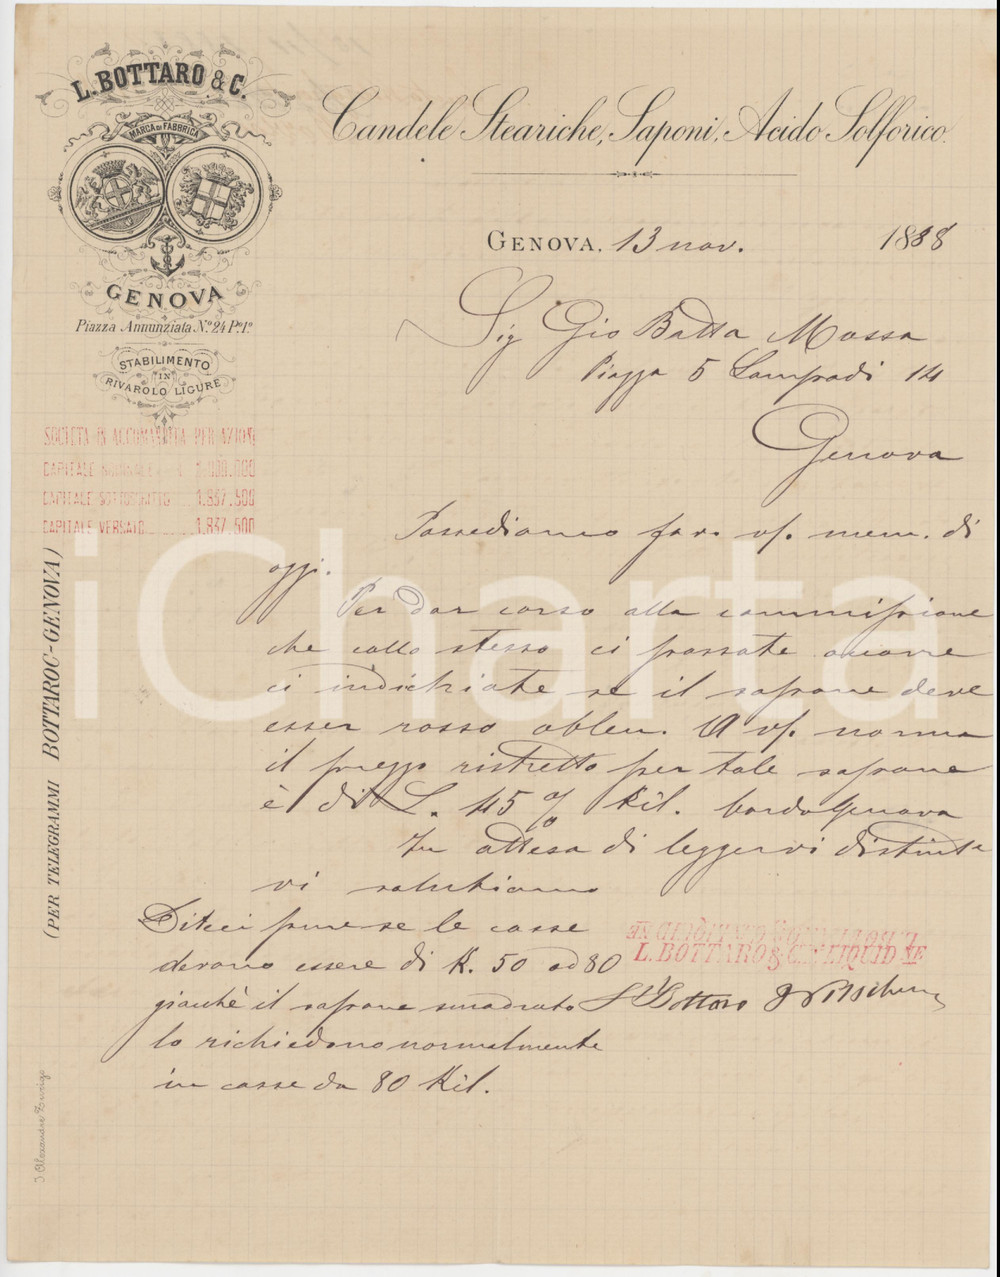 L. BOTTARO & C.
MARCA DI FABBRICA
GENOVA
Piazza Annunziata N.º 24 P.º 1.º
STABILIMENTO
IN
RIVAROLO LIGURE
SOCIETA IN ACCOMANDITA PER AZIONI
CAPITALE NOMINALE L. 3.000.000
CAPITALE SOTTOSCRITTO 1.837.500
CAPITALE VERSATO 1.837.500
(PER TELEGRAMMI BOTTAROC-GENOVA)
Candele Steariche, Saponi, Acido Solforico.
GENOVA, 13 nov. 1888
Sig Gio Batta Massa
Piazza 5 Lampadi 14
Genova
Possediamo fav. vs. mem. di
oggi.
Per dar corso alla commissione
che collo stesso ci passate occorre
ci indichiate se il sapone deve
esser rosso obleu. A vs. norma
il prezzo ristretto per tale sapone
è di L. 45 % Kil. bordo Genova
In attesa di leggervi distinte
vi salutiamo
Diteci pure se le casse
devono essere di K. 50 od 80
giacchè il sapone smadrato
lo richiedono normalmente
in casse da 80 Kil.
L. BOTTARO & C. IN LIQUID NE
Bottaro
iCharta